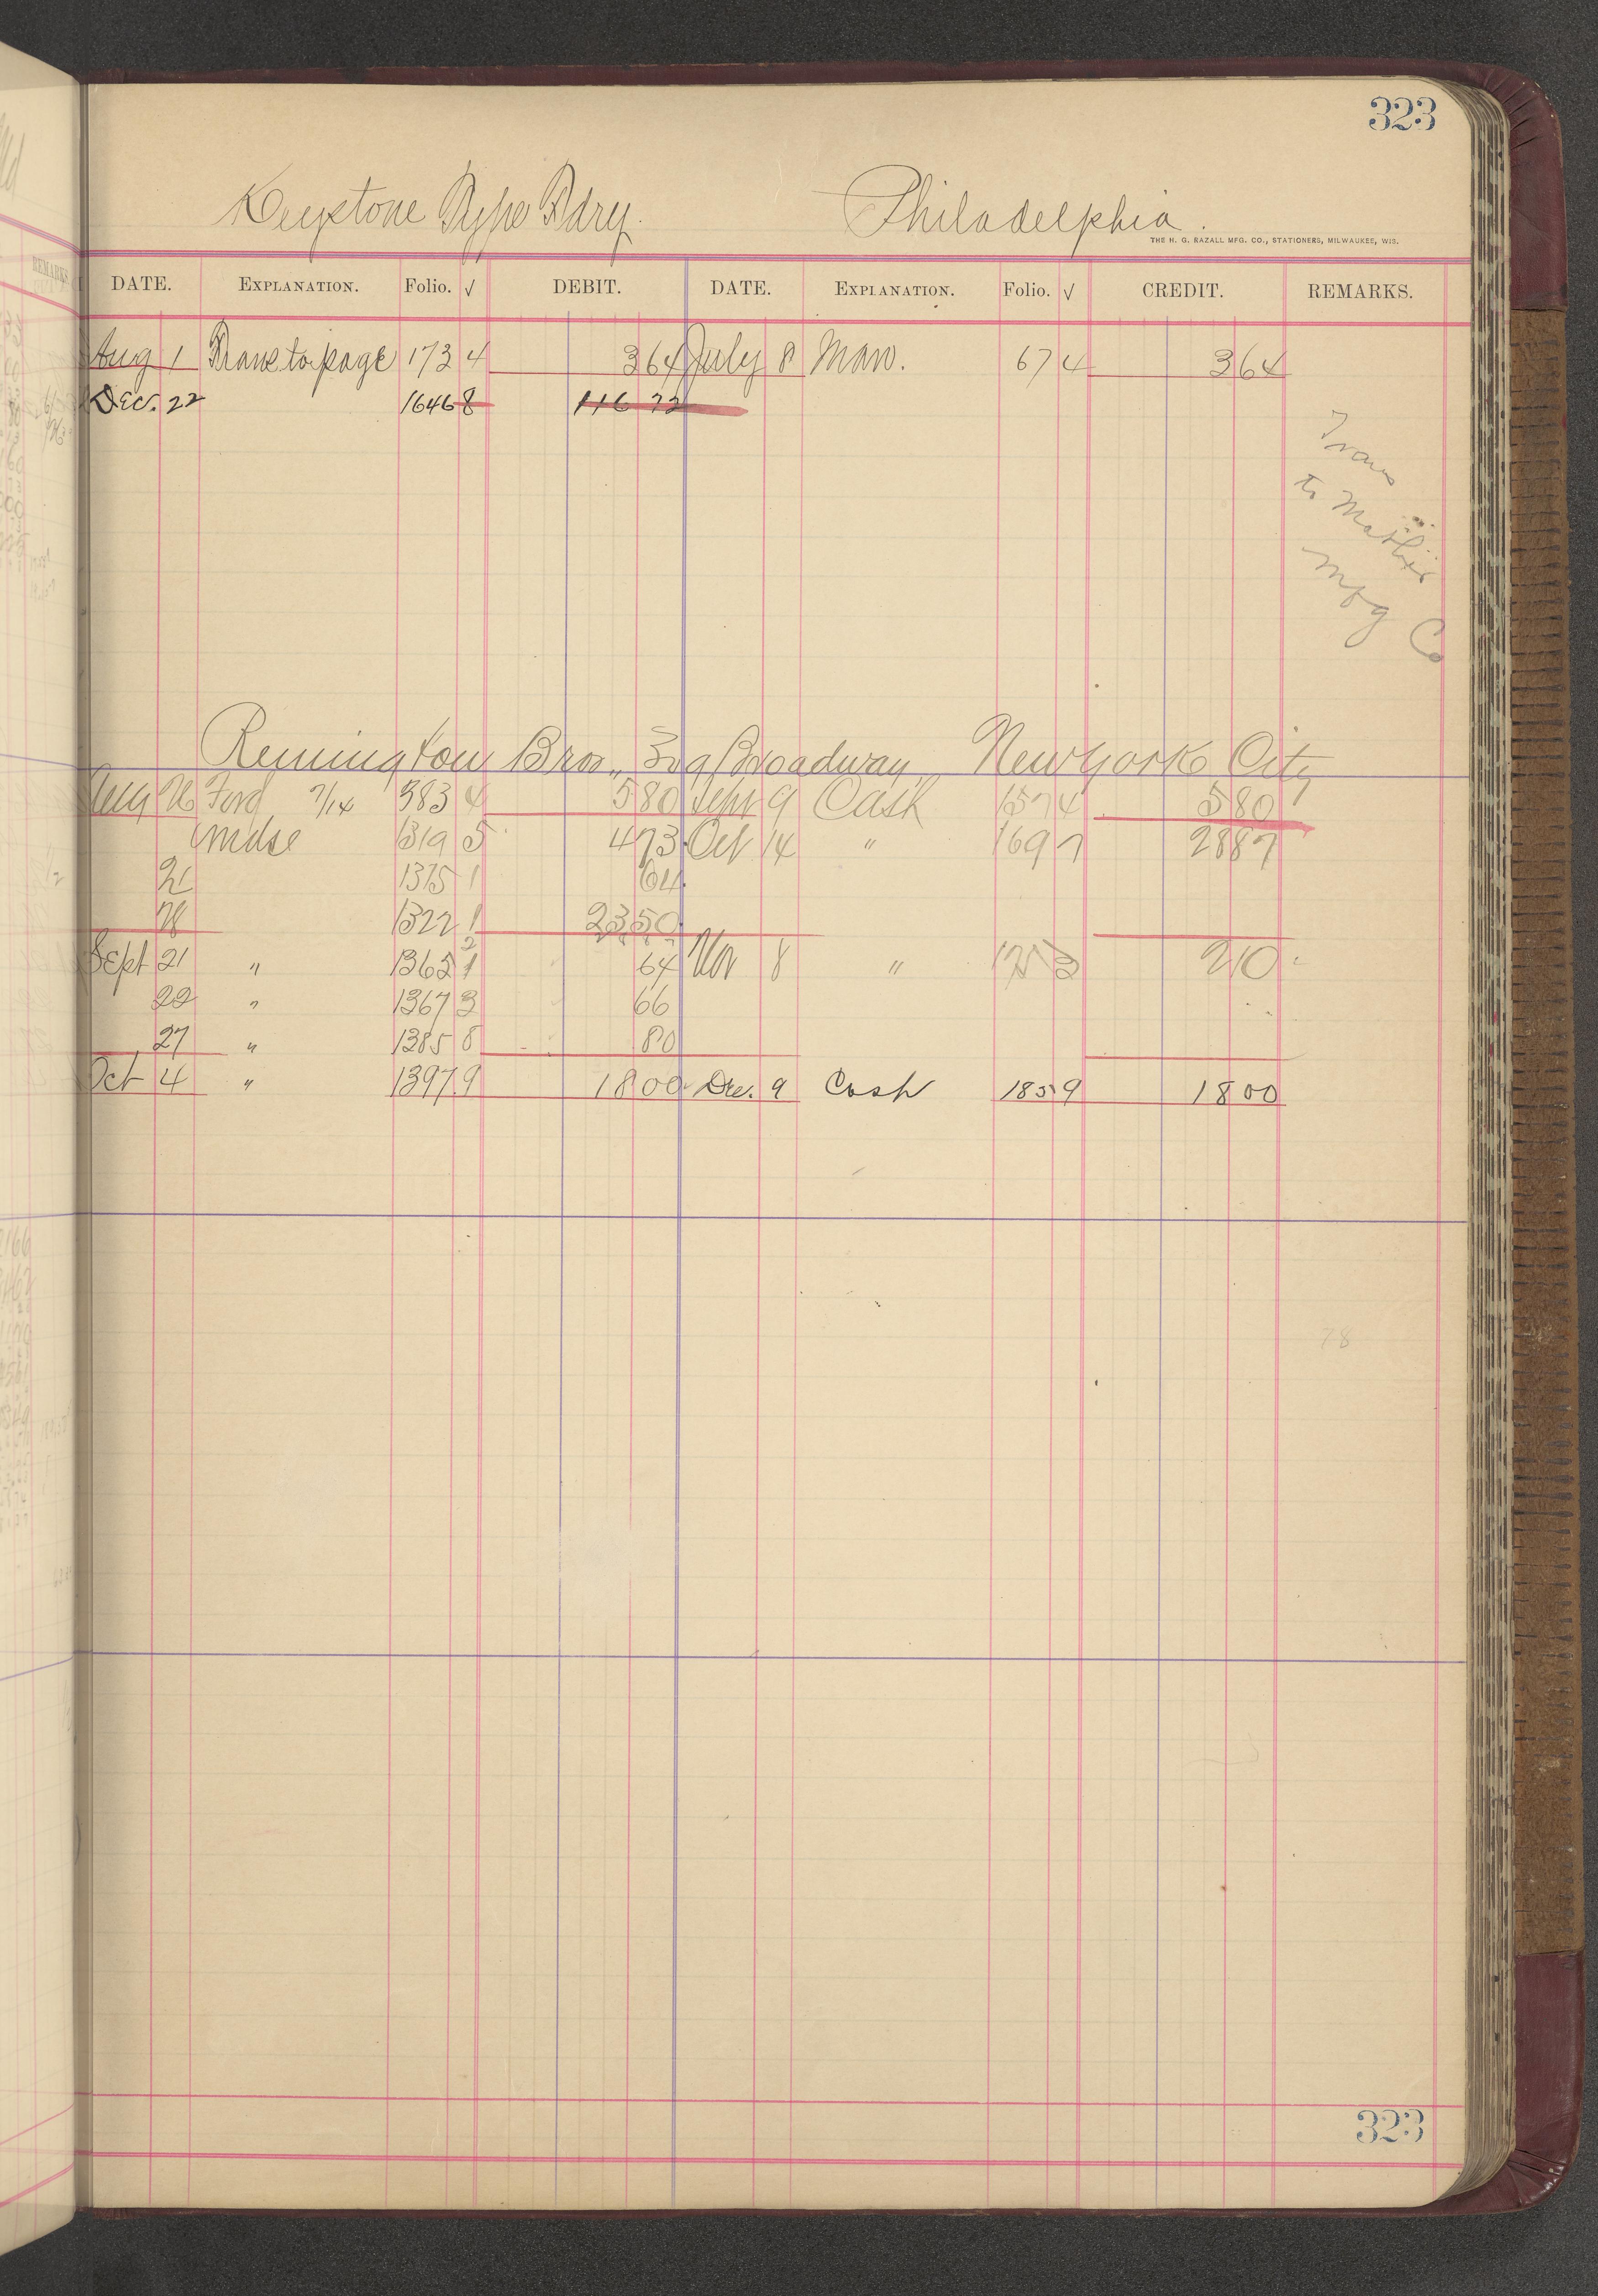 323
Keystone Type Fdry. Philadelphia.
THE H. G. RAZALL MFG. CO., STATIONERS, MILWAUKEE, WIS.
DATE. EXPLANATION. Folio. √ DEBIT. DATE. EXPLANATION. Folio. √ CREDIT. REMARKS.
Aug 1 Trans to page 173 4 3 64 July 8 67 4 3 64
Dec. 22 1646 8 116 72
Trans
to
Mfg Co
Remington Bros., Broadway, New York City
Aug Ford 7/14 383 4 5 80 Sept 9 Cash 157 4 5 80
Mdse 1319 5 4 73 Oct 14 " 169 7 28 87
1315 1 64
1322 1 23 50
Sept 21 " 1365 64 Nov 8 " 2 10
22 " 1367 3 66
27 " 1385 8 80
Oct 4 " 1397 9 18 00 Dec. 9 Cash 185 9 18 00
78
323